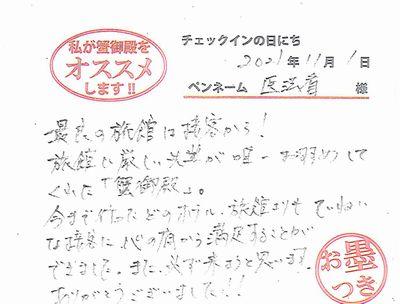 私が蟹御殿を
オススメ
します!!
チェックインの日にち
2021年11月1日
ペンネーム 様
最良の旅館は接客から!
旅館に厳しい が唯一お褒めして
くれた「蟹御殿」。
今まで行ったどのホテル、旅館よりもていねい
な接客に心の底から満足することが
できました。また、必ず来ようと思います。
ありがとうございました!!
お墨
つき